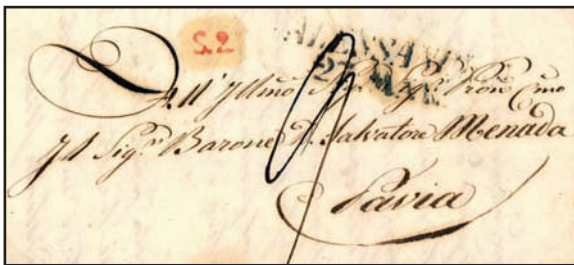 22
ALESSANDRIA
27 MAR
All' Illmo Sig. Sig. Pron Cmo
Il Sig.r Barone D. Salvatore Menada
Pavia